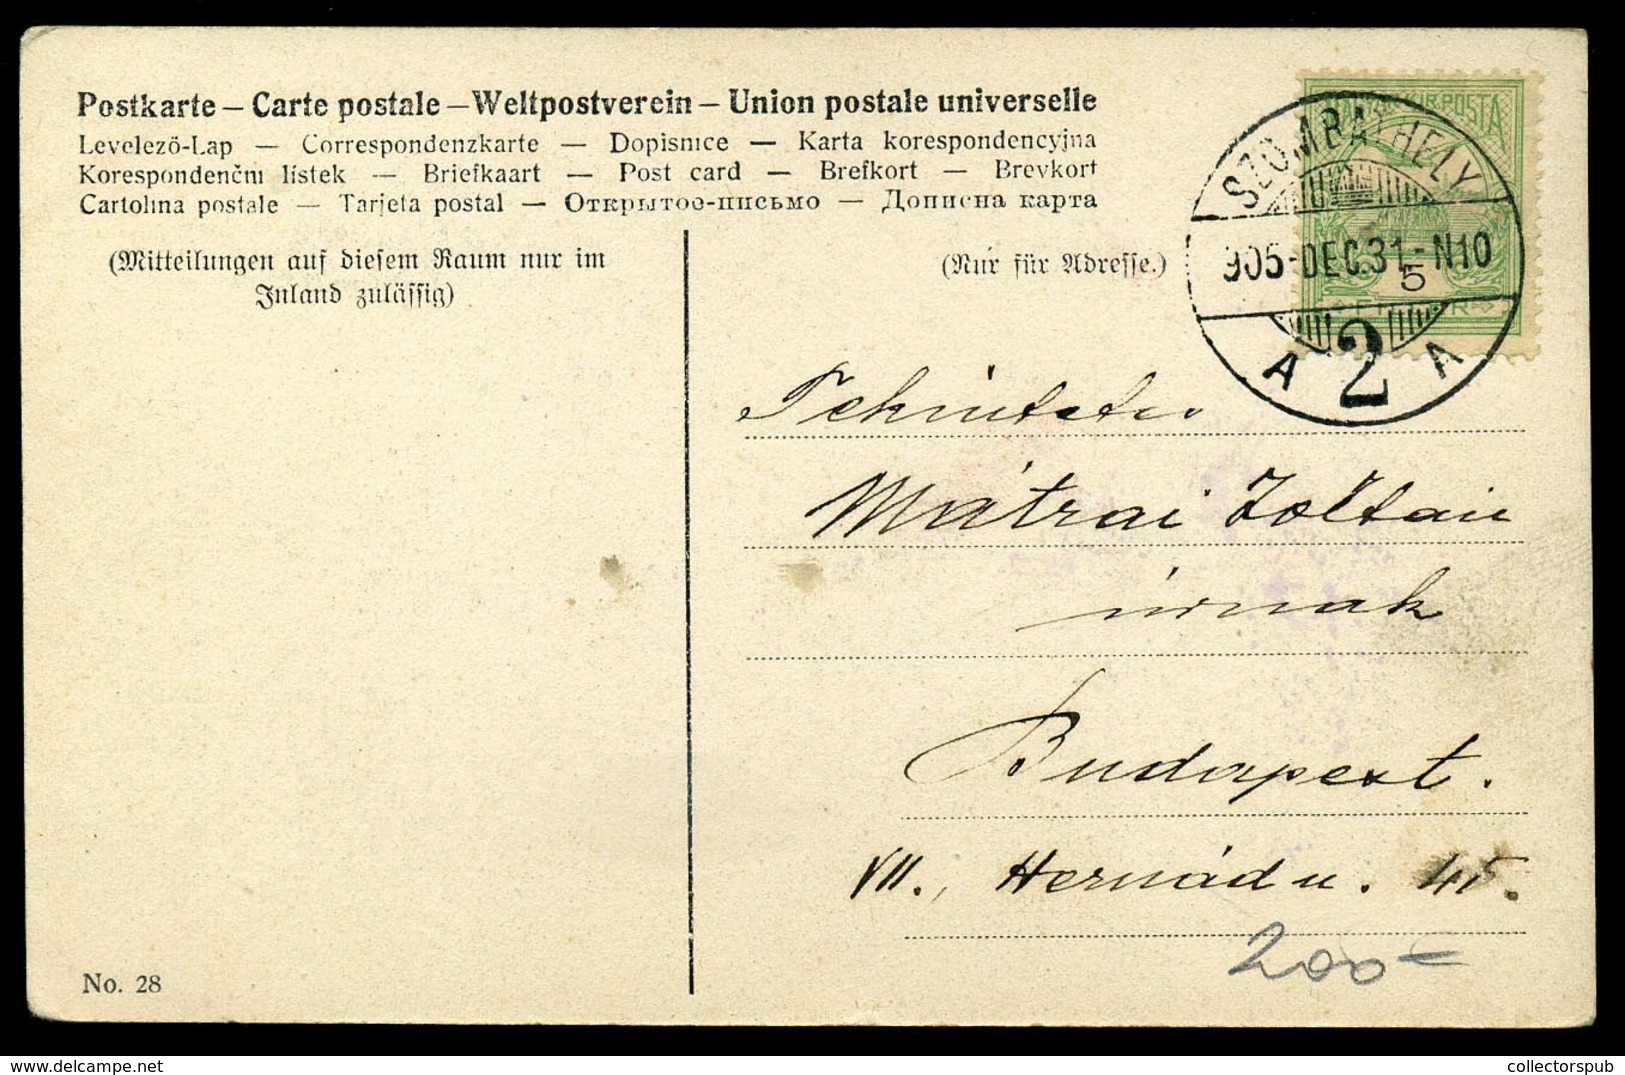 Postkarte – Carte postale – Weltpostverein – Union postale universelle
Levelező-Lap — Correspondenzkarte — Dopisnice — Karta korespondencyjna
Korespondenčni listek — Briefkaart — Post card — Brefkort — Brevkort
Cartolina postale — Tarjeta postal — Открытое-письмо — Дописна карта
(Mitteilungen auf diesem Raum nur im
Inland zulässig)
(Nur für Adresse.)
MAGYAR KIR. POSTA
SZOMBATHELY
905-DEC.31-N10
5
FILLÉR
A 2 A
Tekintetes
Mátrai Zoltán
úrnak
Budapest.
VII., Hernád u. 45.
200-
No. 28
collectorspub